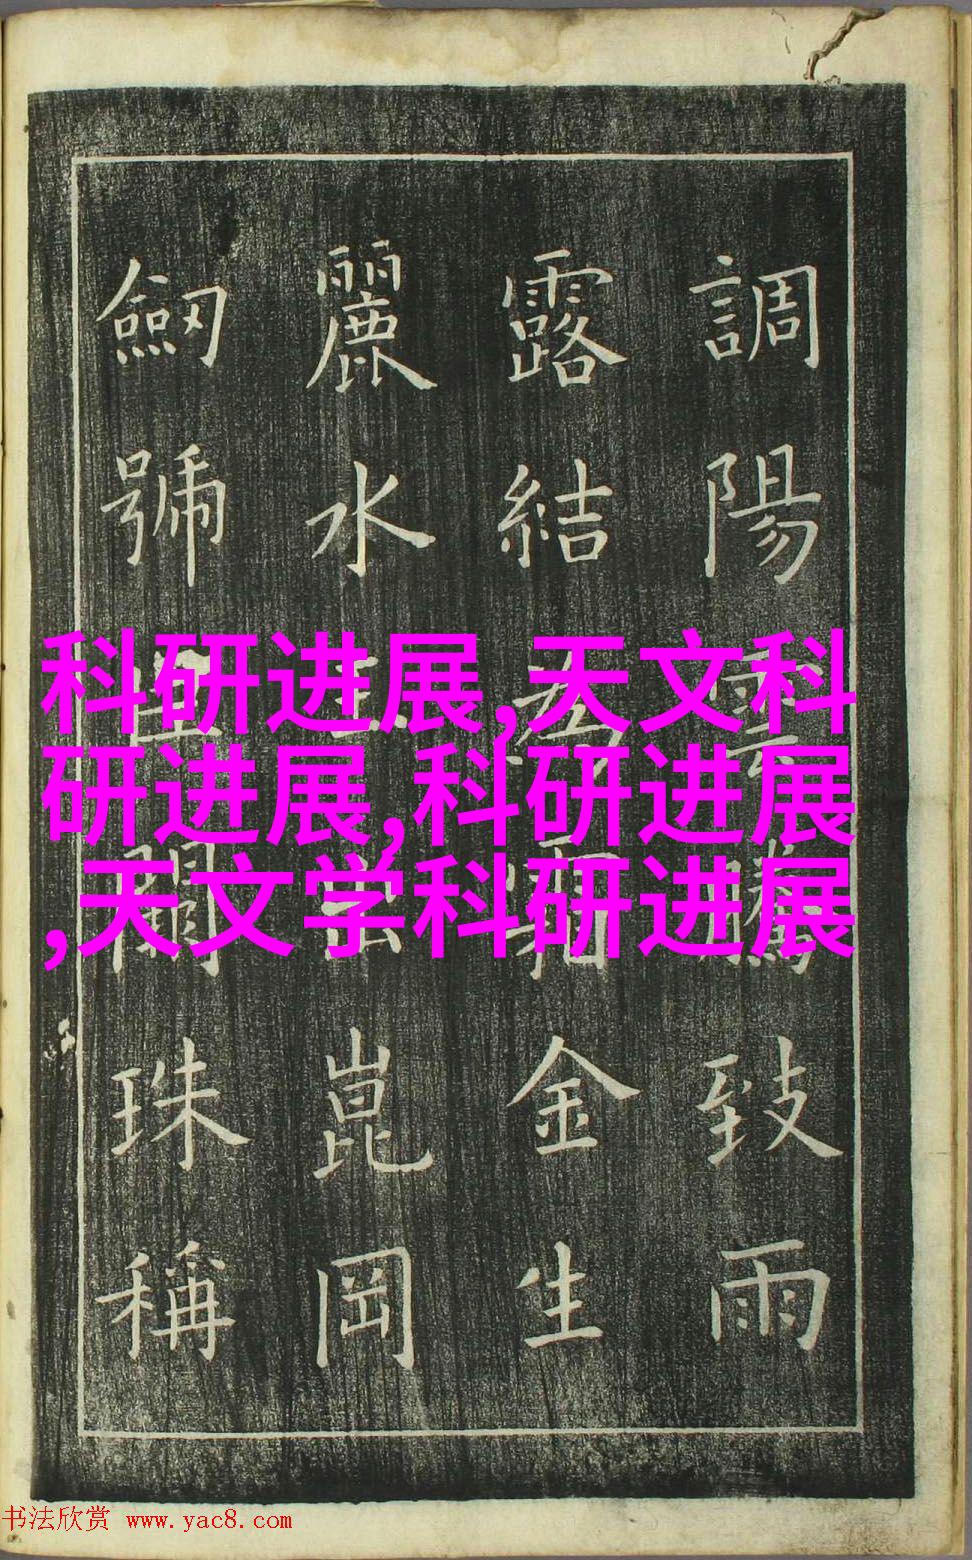 調陽雲騰致雨
露結為霜金生
麗水玉出崑岡
劒號巨闕珠稱
科研进展,天文科
研进展,科研进展
,天文学科研进展
书法欣赏 www.yac8.com